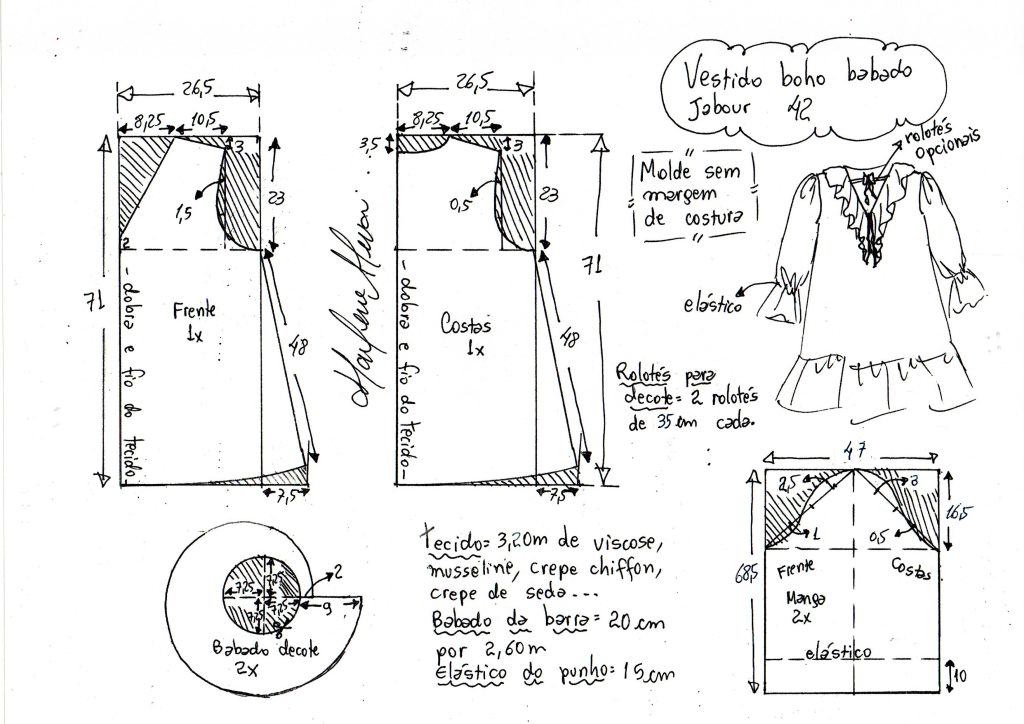 Vestido boho babado
Jabour 42
rolotés
opcionais
Molde sem
margem
de costura
elástico
26,5
8,25
10,5
3
23
1,5
2
71
48
7,5
Frente
1x
-dobra e fio do tecido-
26,5
8,25
10,5
3,5
3
23
0,5
71
48
7,5
Costas
1x
-dobra e fio do tecido-
Rolotés para
decote= 2 rolotés
de 35 cm cada.
47
2,5
3
16,5
1
0,5
68,5
Frente
Costas
Manga
2x
elástico
10
7,25
7,25
7,25
7,25
2
9
Babado decote
2x
tecido= 3,20m de viscose,
musseline, crepe chiffon,
crepe de seda...
Babado da barra= 20 cm
por 2,60m
Elástico do punho= 15cm